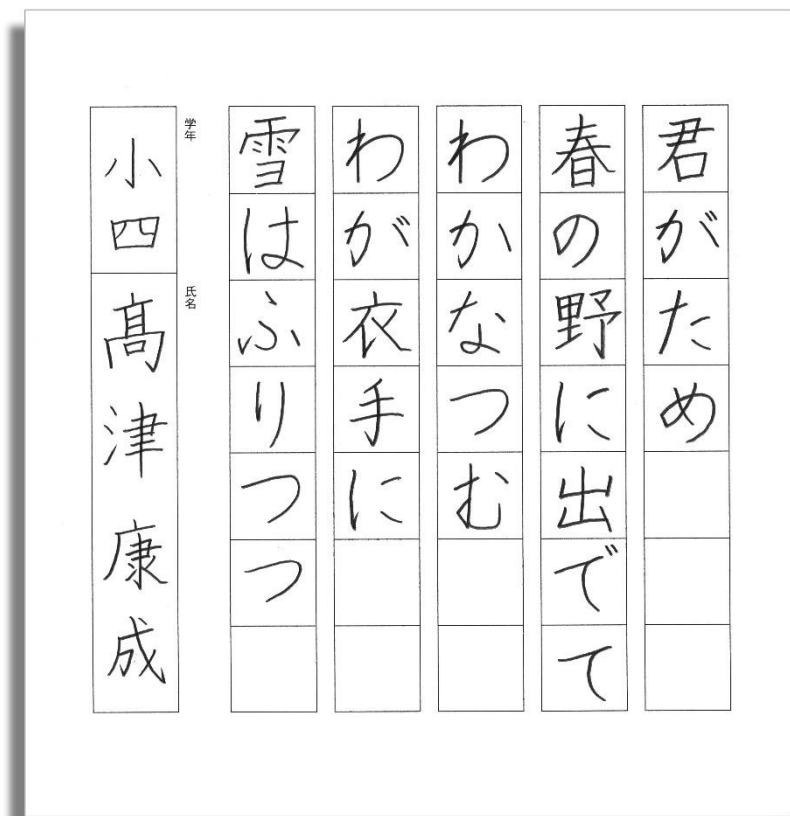 君がため
春の野に出でて
わかなつむ
わが衣手に
雪はふりつつ
学年
小四
氏名
髙津康成